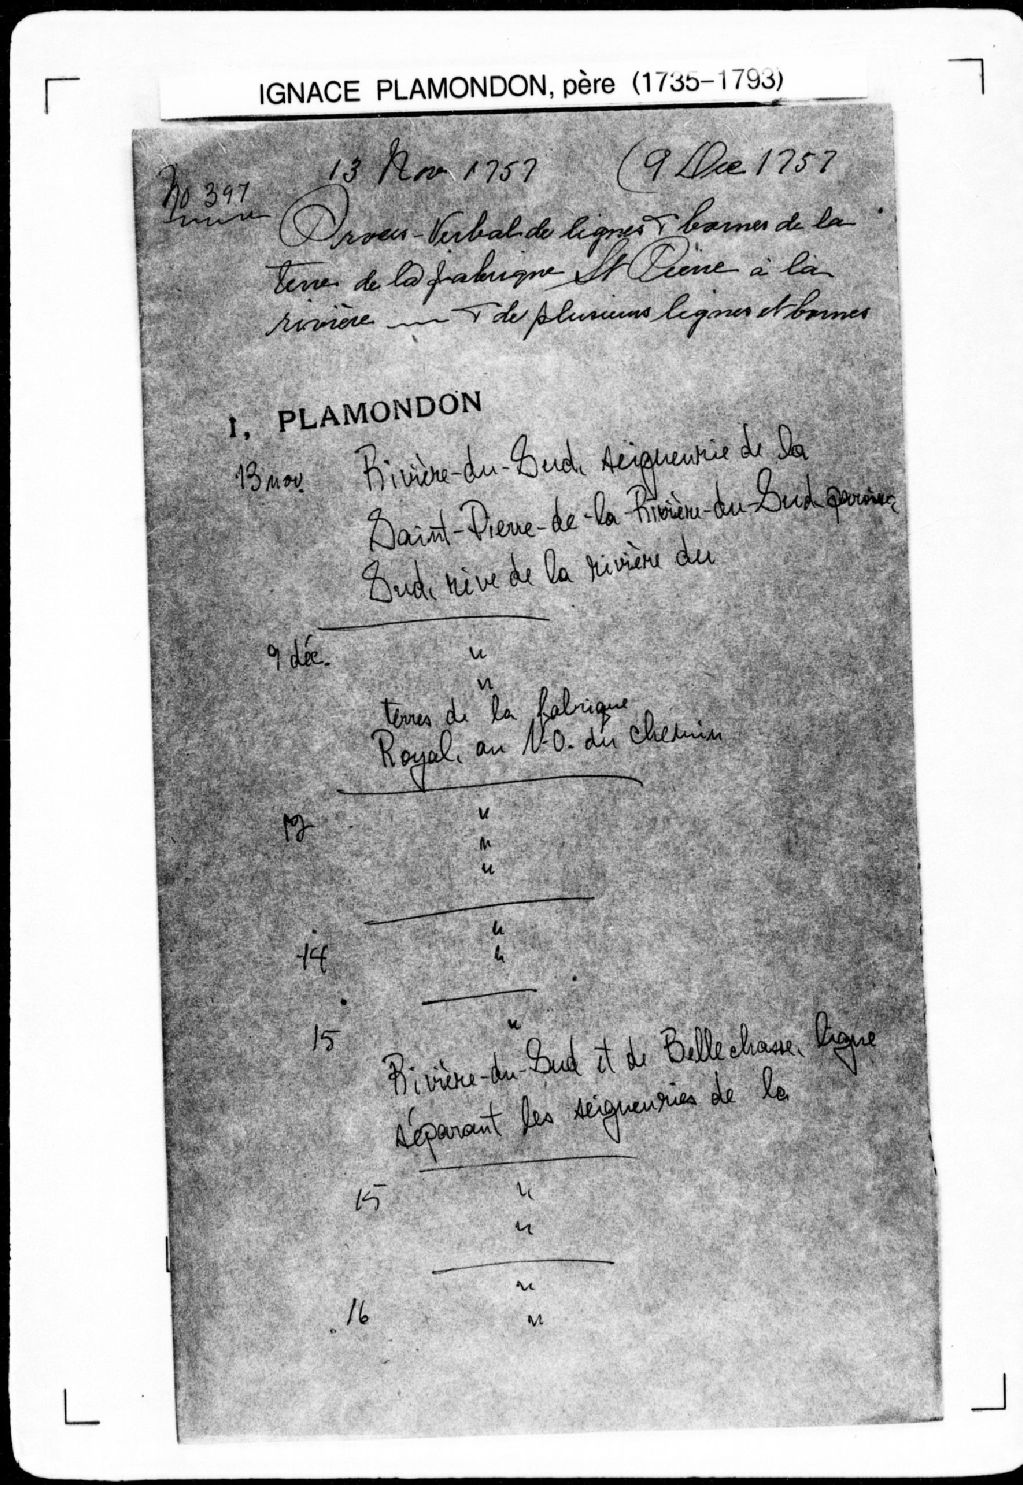 IGNACE PLAMONDON, père (1735-1793)
13 Nov 1757 (9 Dec 1757
No 397
Procès-Verbal de lignes & bornes de la
terre de la fabrique St Pierre à la
rivière & de plusieurs lignes et bornes
I. PLAMONDON
13 nov. Rivière-du-Sud, seigneurie de la
Saint-Pierre-de-la-Rivière-du-Sud, paroisse
Sud, rive de la rivière du
9 déc. "
"
terres de la fabrique
Royal, au N.-O. du chemin
"
"
"
"
14 "
15 "
Rivière-du-Sud et de Bellechasse, ligne
séparant les seigneuries de la
15 "
"
"
16 "